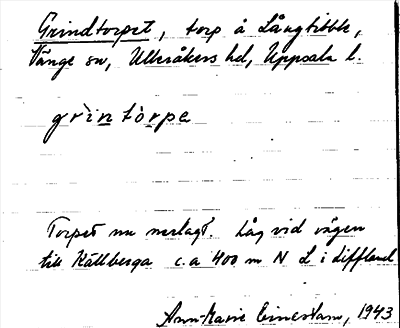 Grindtorpet, torp å Långtibble,
Vänge sn, Ulleråkers hd, Uppsala l.
grìntòrpe
Torpet nu nerlagt. Låg vid vägen
till Källberga c.a 400 m N L i Liffland
Ann-Marie Einestam, 1943